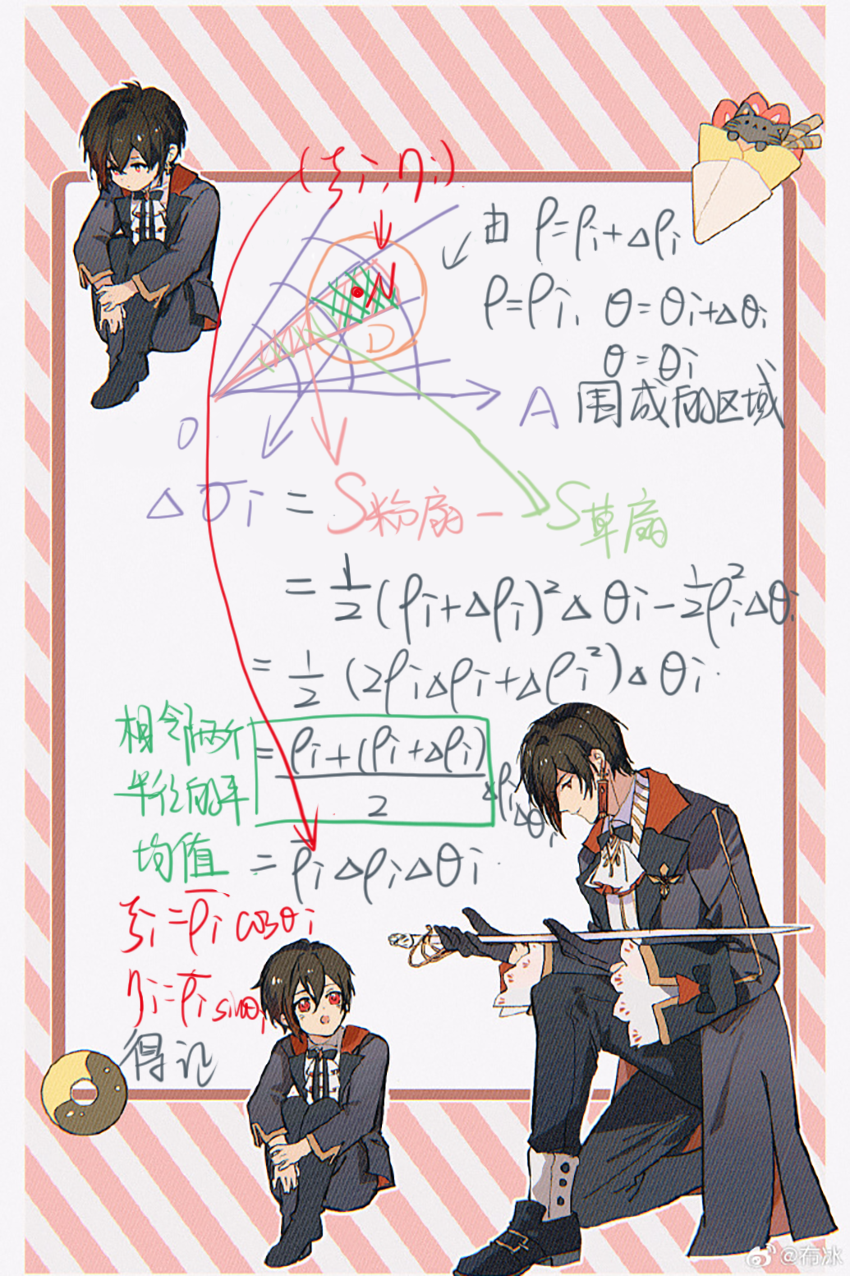 (ξi, ηi)
由 ρ=ρi+Δρi
N
ρ=ρi, θ=θi+Δθi
D
θ=θi
O
A 围成的区域
Δσi = S粉扇 - S草扇
= 1/2(ρi+Δρi)²Δθi - 1/2ρi²Δθi
= 1/2(2ρiΔρi+Δρi²)Δθi
相邻两个
半径的平
均值
= (ρi+(ρi+Δρi))/2 ΔρiΔθi
= ρ̅iΔρiΔθi
ξi = ρ̅i cosθi
ηi = ρ̅i sinθi
得记
@布冰